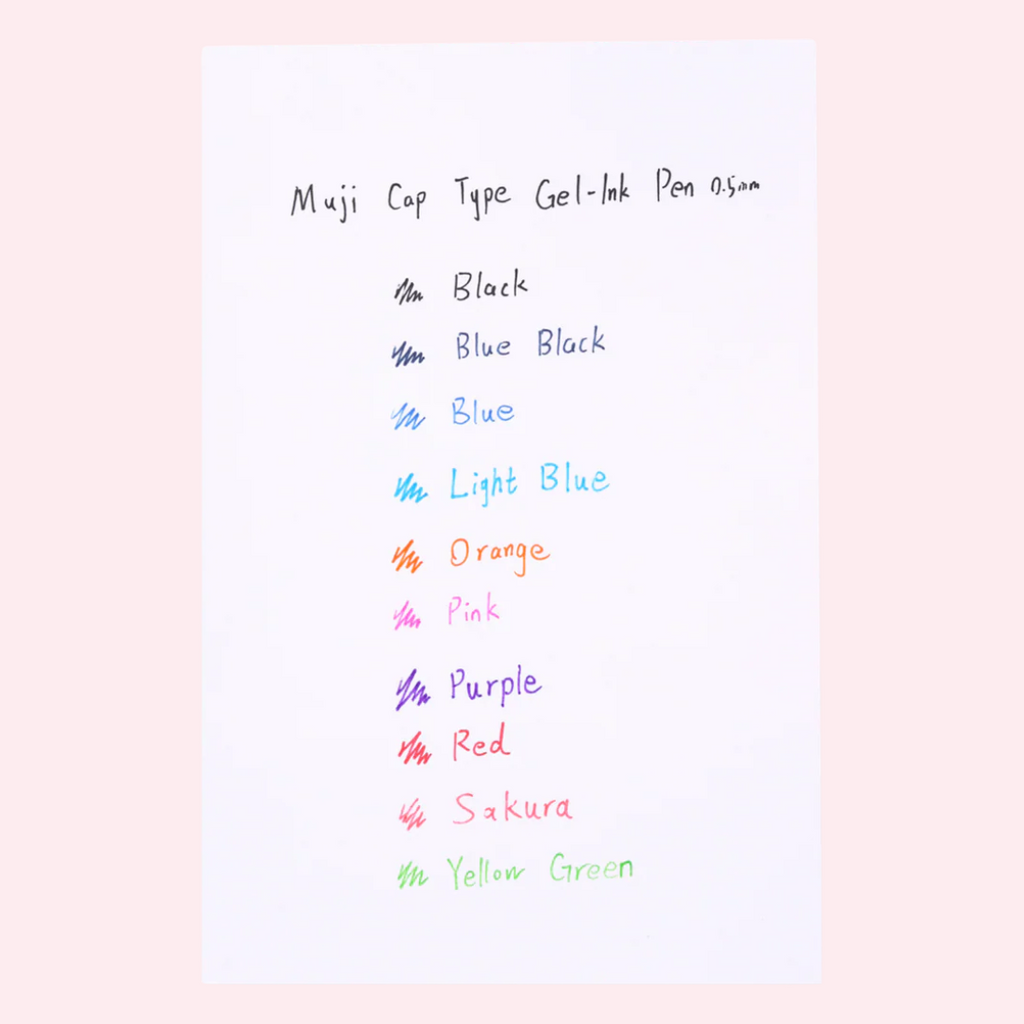 Muji Cap Type Gel-Ink Pen 0.5mm
Black
Blue Black
Blue
Light Blue
Orange
Pink
Purple
Red
Sakura
Yellow Green